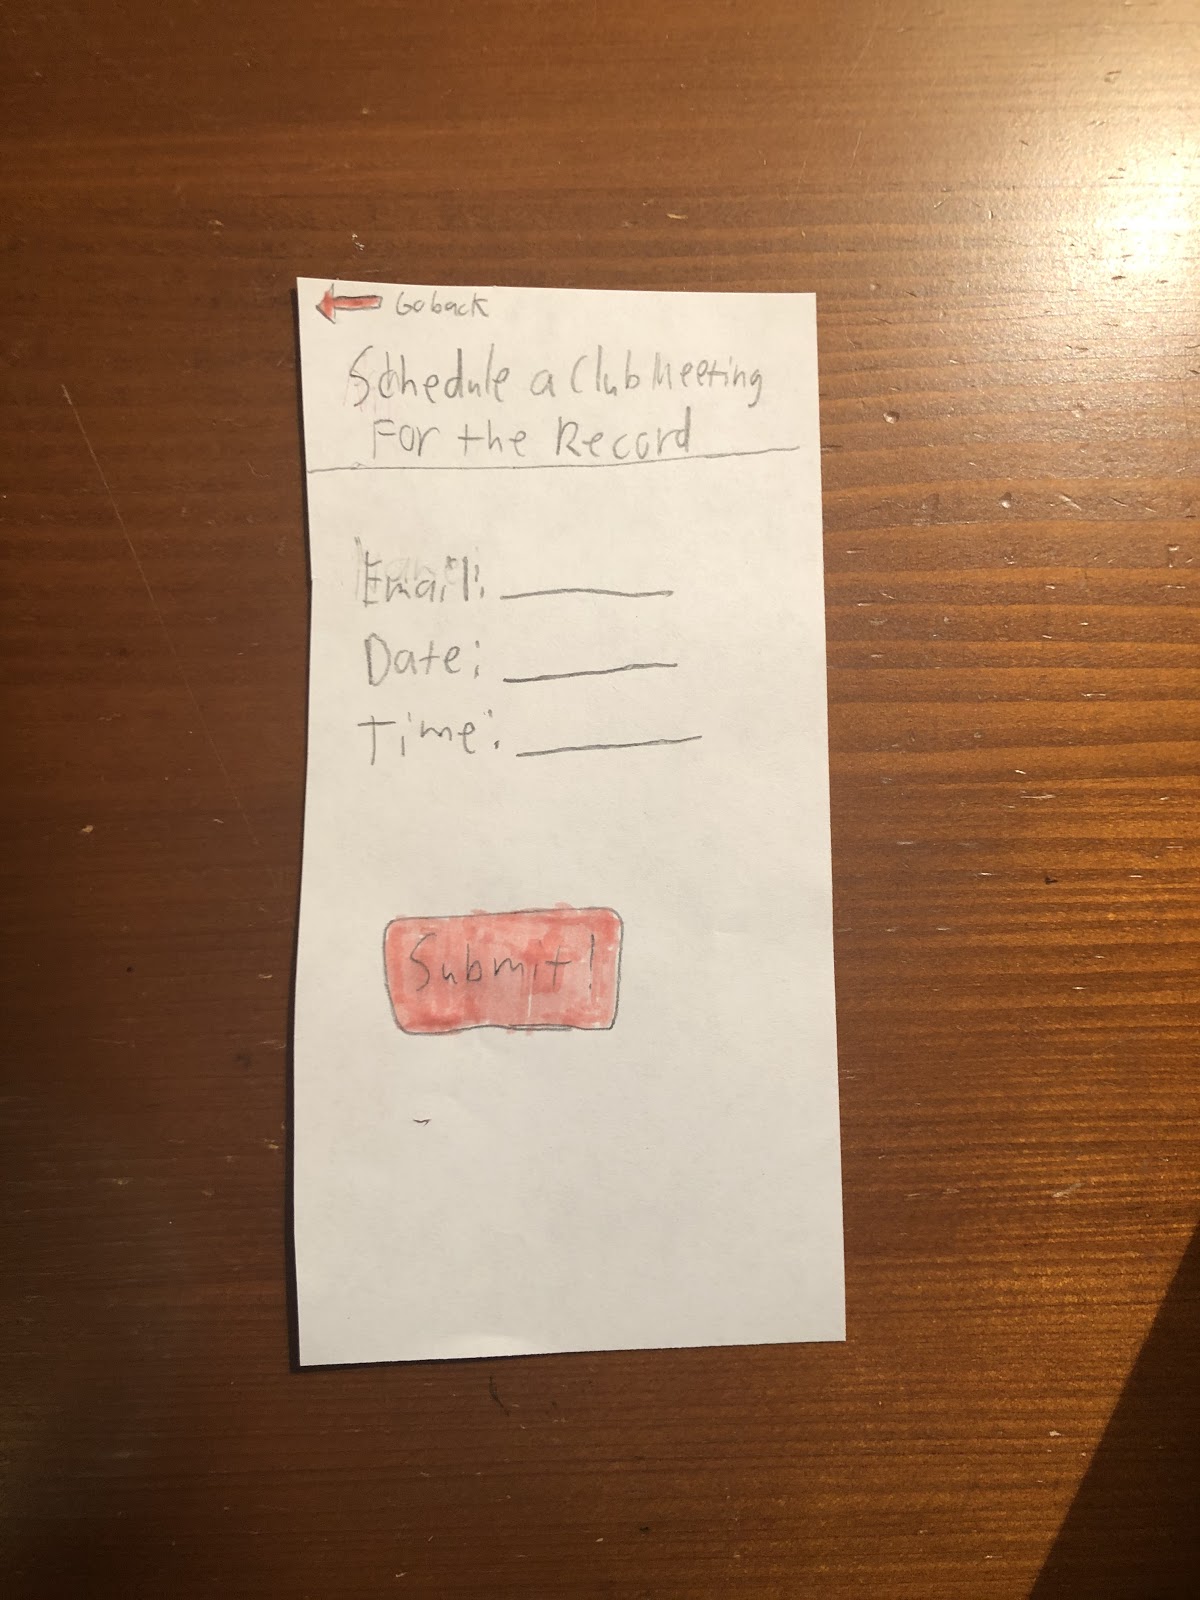 Go back
Schedule a Club Meeting
For the Record
Email:
Date:
Time:
Submit!